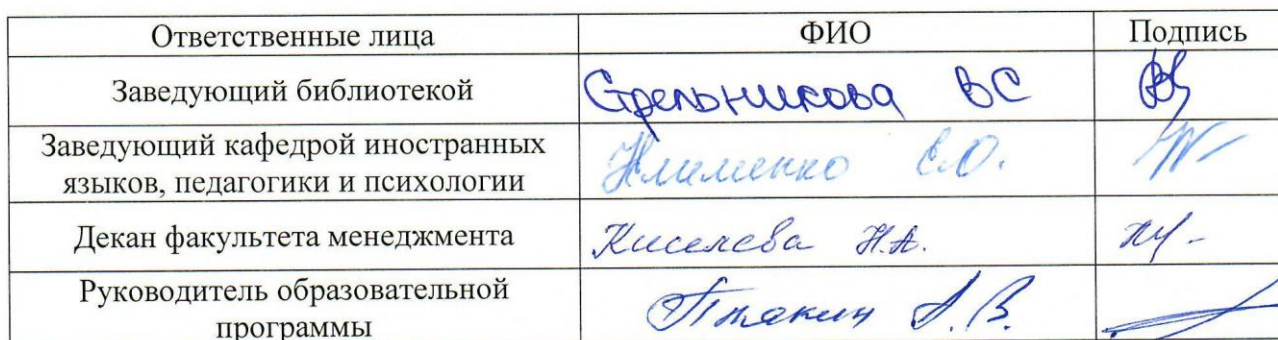 Ответственные лица ФИО Подпись
Заведующий библиотекой Стрельникова ВС
Заведующий кафедрой иностранных
языков, педагогики и психологии Клименко Е.О.
Декан факультета менеджмента Киселева Н.А.
Руководитель образовательной
программы А.В.